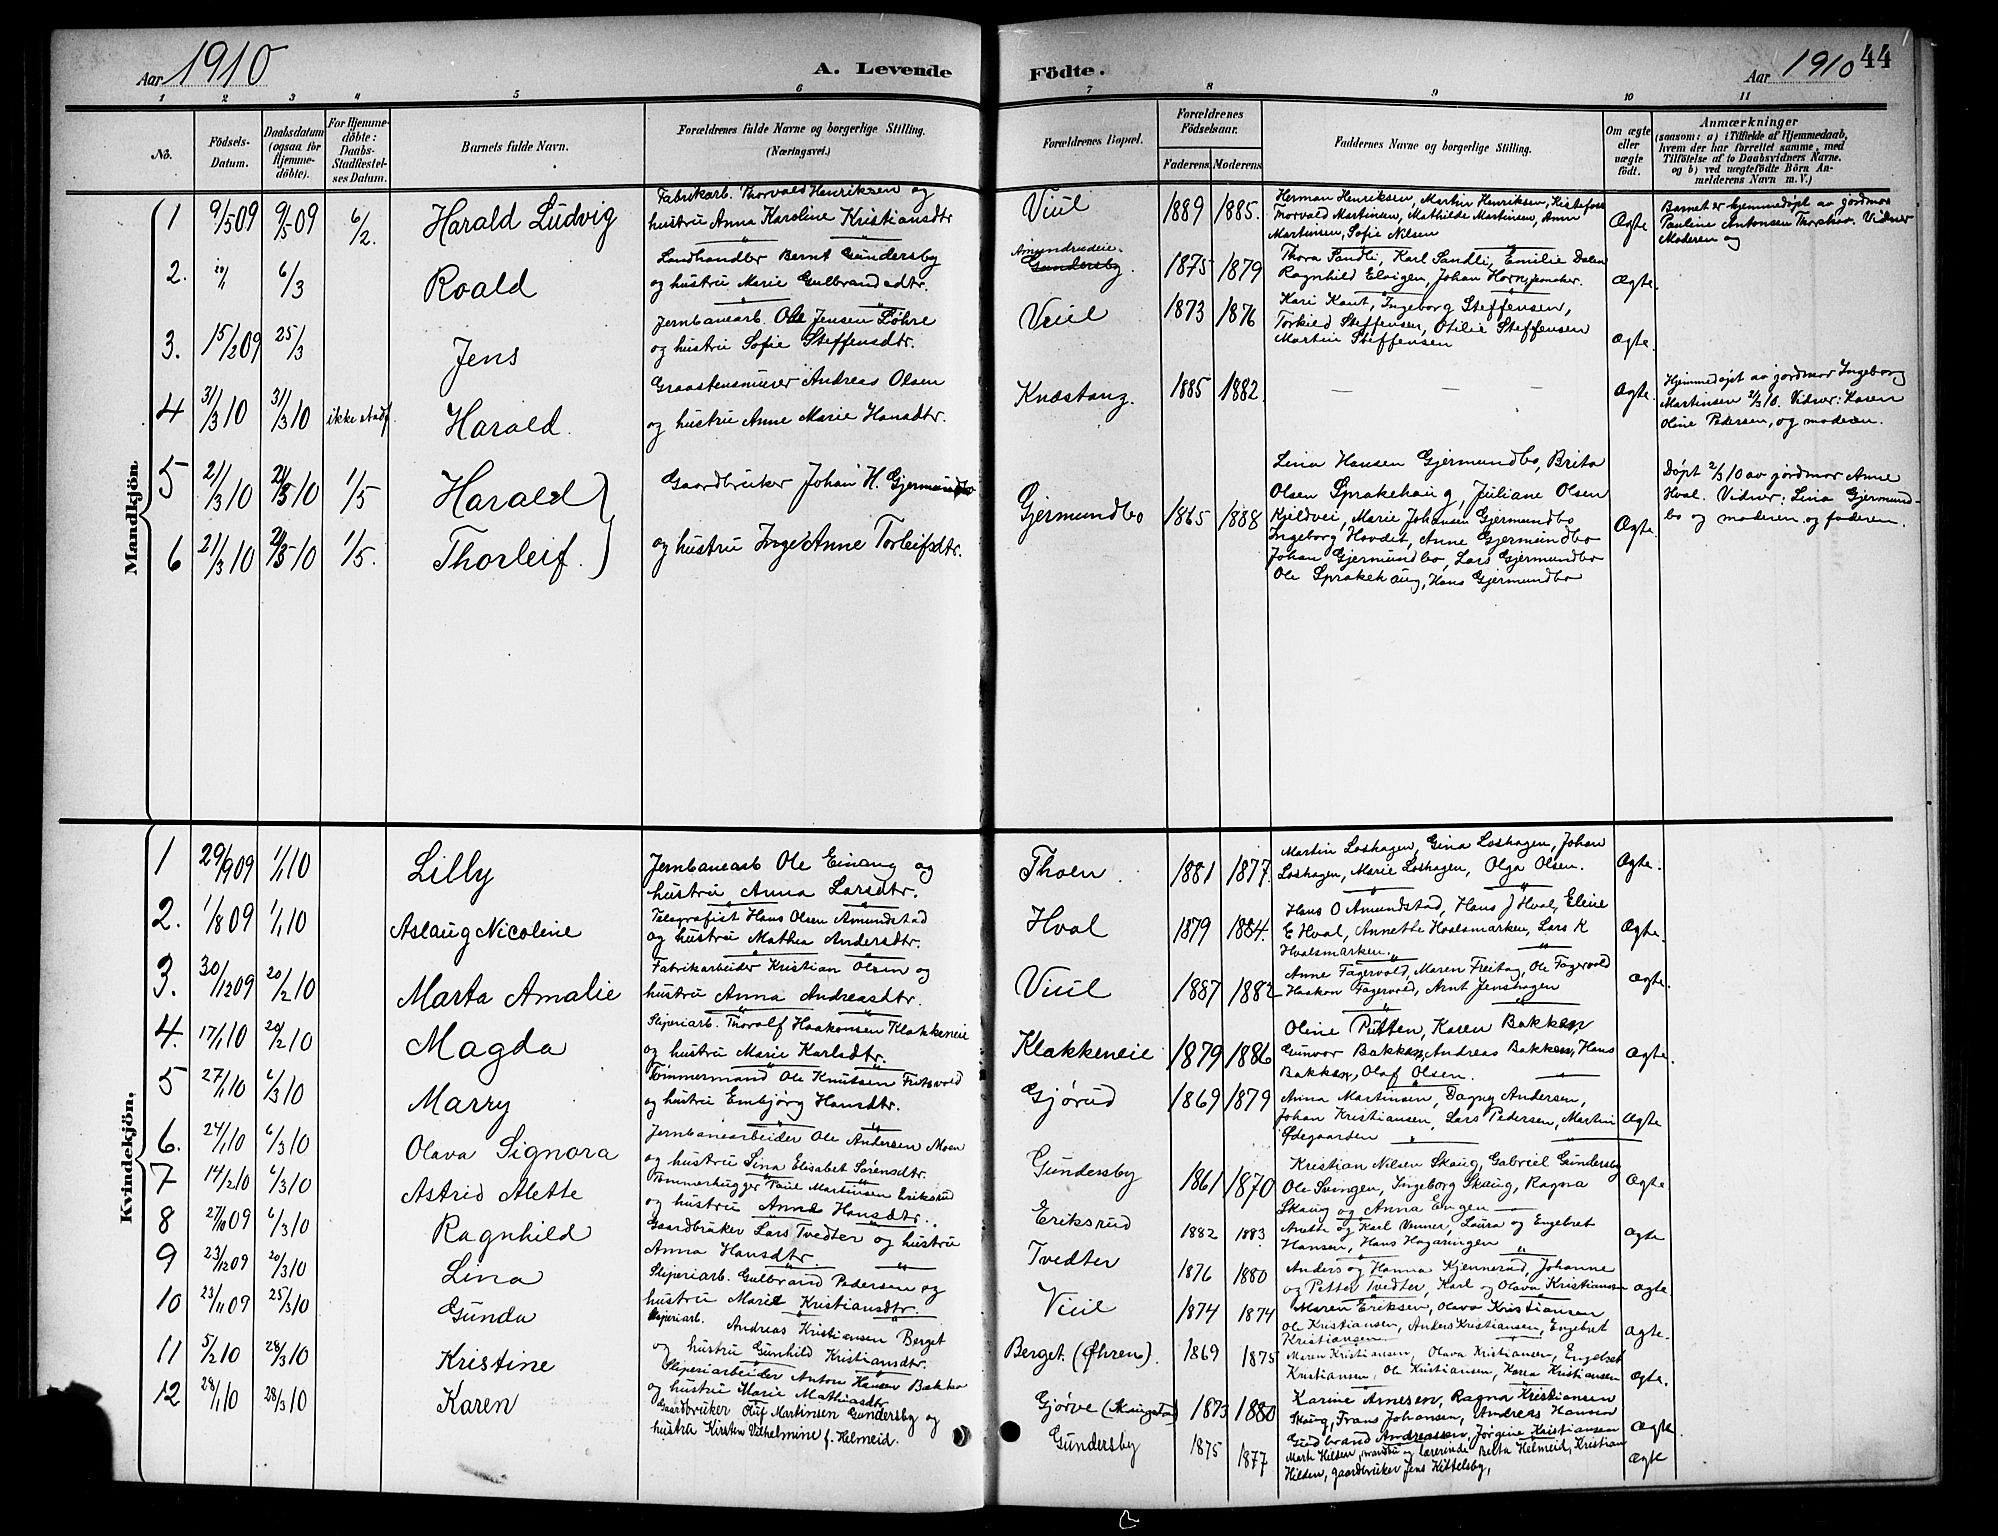 Aar 1910
A. Levende
Födte.
Aar 1910
44
1 2 3 4 5 6 7 8 9 10 11
No.
Födsels-
Datum.
Daabsdatum
(ogsaa for
Hjemme-
döbte).
For Hjemme-
döbte:
Daabs-
Stadfæstel-
ses Datum.
Barnets fulde Navn.
Forældrenes fulde Navne og borgerlige Stilling.
(Næringsvei.)
Forældrenes Bopæl.
Forældrenes
Födselsaar.
Faderens. Moderens.
Faddernes Navne og borgerlige Stilling.
Om ægte
eller
uægte
födt.
Anmærkninger
(saasom: a) i Tilfælde af Hjemmedaab,
hvem der har forrettet samme, med
Tilföielse af to Daabsvidners Navne.
og b) ved uægtefödte Börn An-
melderens Navn m. V.)
Mandkjön.
1 9/5 09 9/5 09 6/2. Harald Ludvig
Fabrikarb. Thorvald Henriksen og
hustru Anna Karoline Kristiansdtr
Viul 1889 1885.
Herman Henriksen, Martin Henriksen, Kistefoss
Thorvald Martinsen, Mathilde Martinsen, Anna
Martinsen, Sofie Nilsen
Ægte
Barnet er hjemmedøpt av jordmor
Pauline Antonsen Vidner
Moderen og
2. 20/1 6/3 Roald
Landhandler Bernt Gundersby
og hustru Marie Gulbrandsdtr.
Gundersby. 1875 1879
Thora Sandli, Karl Sandli, Emilie Dalen
Ragnhild Elvigen, Johan
Ægte.
3. 15/2 09 25/3 Jens
Jernbanearb. Ole Jensen Føhre
og hustru Sofie Steffensdtr.
Viul 1873 1876
Kari Kant, Ingeborg Steffensen,
Torkild Steffensen, Otilie Steffensen
Martin Steffensen
Ægte.
4 31/3 10 31/3 10 ikke stadf. Harald.
Graastensmurer Andreas Olsen
og hustru Anne Marie Hansdtr.
Knæstang. 1885 1882. — — — Ægte.
Hjemmedøpt av jordmor Ingeborg
Martinsen 31/3 10. Vidner: Karen
Oline Pedersen, og moderen.
5 21/3 10 21/3 10 1/5 Harald
6 21/3 10 21/3 10 1/5. Thorleif.
Gaardbruker Johan H. Gjermundbo
og hustru Inge Anne Torleifsdtr.
Gjermundbo 1865 1888
Lina Hansen Gjermundbo, Brita
Olsen Sprakehaug, Juliane Olsen
Kjeldvei, Marie Johansen Gjermundbo
Ingeborg Hovde, Anne Gjermundbo
Johan Gjermundbo, Lars Gjermundbo
Ole Sprakehaug, Hans Gjermundbo
Ægte.
Døpt 21/3 10 av jordmor Anne
Hval. Vidner: Lina Gjermund-
bo og moderen og faderen.
Kvindekjön.
1 29/9 09 1/1 10 Lilly
Jernbanearb Ole Einang og
hustru Anna Larsdtr.
Thoen. 1881 1877.
Martin Loshagen, Gina Loshagen, Johan
Loshagen, Marie Loshagen, Olga Olsen.
Ægte.
2. 1/8 09 1/1 10 Aslaug Nicoline
Telegrafist Hans Olsen Amundstad
og hustru Mathea Andersdtr.
Hval 1879 1884.
Hans O Amundstad, Hans J Hval, Eline
E Hval, Annette Hvalsmarken, Lars K
Hvalsmarken.
Ægte.
3. 30/12 09 20/2 10 Marta Amalie
Fabrikarbeider Kristian Olsen og
hustru Anna Andreasdtr.
Viul 1887 1882
Anne Fagervold, Maren Freitag, Ole Fagervold
Haakon Fagervold, Arnt Jenshagen
Ægte.
4. 17/1 10 20/2 10 Magda
Sliperiarb. Thoralf Haakonsen Klækkeneie
og hustru Marie Karlsdtr.
Klækkeneie 1879 1886
Oline Putten, Karen Bakken
Gunvor Bakken, Andreas Bakken, Hans
Bakken, Olaf Olsen.
Ægte.
5 27/1 10 6/3 10 Marry
Tømmermand Ole Knutsen Fritsvold
og hustru Embjørg Hansdtr.
Gjørud 1869 1879
Anna Martinsen, Dagny Andersen,
Johan Kristiansen, Lars Pedersen, Martin
Ødegaarden
Ægte
6. 24/1 10 6/3 10 Olava Signora
Jernbanearbeider Ole Andersen Moen
og hustru Lina Elisabet Sørensdtr.
Gundersby 1861 1870
Kristian Nilsen Skaug, Gabriel Gundersby
Ole Svingen, Ingeborg Skaug, Ragna
Skaug og Anna Engen
Ægte
7 14/2 10 6/3 10 Astrid Alette
Tømmerhugger Paul Martinsen Eriksrud
og hustru Anne Hansdtr.
Eriksrud 1882 1883
Anette og Karl Venner, Laura og Engebret
Hansen, Hans Hagaringen
Ægte
8 27/10 09 6/3 10 Ragnhild
Gaardbruker Lars Tvedter og hustru
Anna Hansdtr.
Tvedter 1876 1880
Anders og Hanna Kjennerud, Johanne
og Petter Tvedter, Karl og Olava Kristiansen
Ægte
9 23/12 09 20/3 10 Lina
Sliperiarb. Gulbrand Pedersen og
hustru Marie Kristiansdtr.
Viul 1874 1874
Maren Eriksen, Olava Kristiansen
Ole Kristiansen, Anders Kristiansen, Engebret
Kristiansen
Ægte.
10 23/11 09 25/3 10 Gunda
Sliperiarb. Andreas Kristiansen Berget
og hustru Gunhild Kristiansdtr.
Berget. (Øhren). 1869 1875
Maren Kristiansen, Olava Kristiansen, Engebret
Kristiansen, Ole Kristiansen, Karen Kristiansen
Ægte.
11 5/2 10 28/3 10 Kristine
Sliperiarbeider Anton Hansen Bakka
og hustru Marie Mathiasdtr.
Gjørve 1873 1880
Karine Arnesen, Ragna Kristiansen
Skaug, Frans Johansen, Andreas Hansen
Gudbrand Andreassen, Jørgine Kristiansen
Ægte.
12 28/1 10 28/3 10 Karen
Gaardbruker Oluf Martinsen Gundersby og
hustru Kirsten Vilhelmine f. Helmeid.
Gundersby 1875 1877
Marte Hilden, lærerinde Berta Helmeid, Kristian
Hilden, gaardbruker Jens Kittelsby,
Ægte